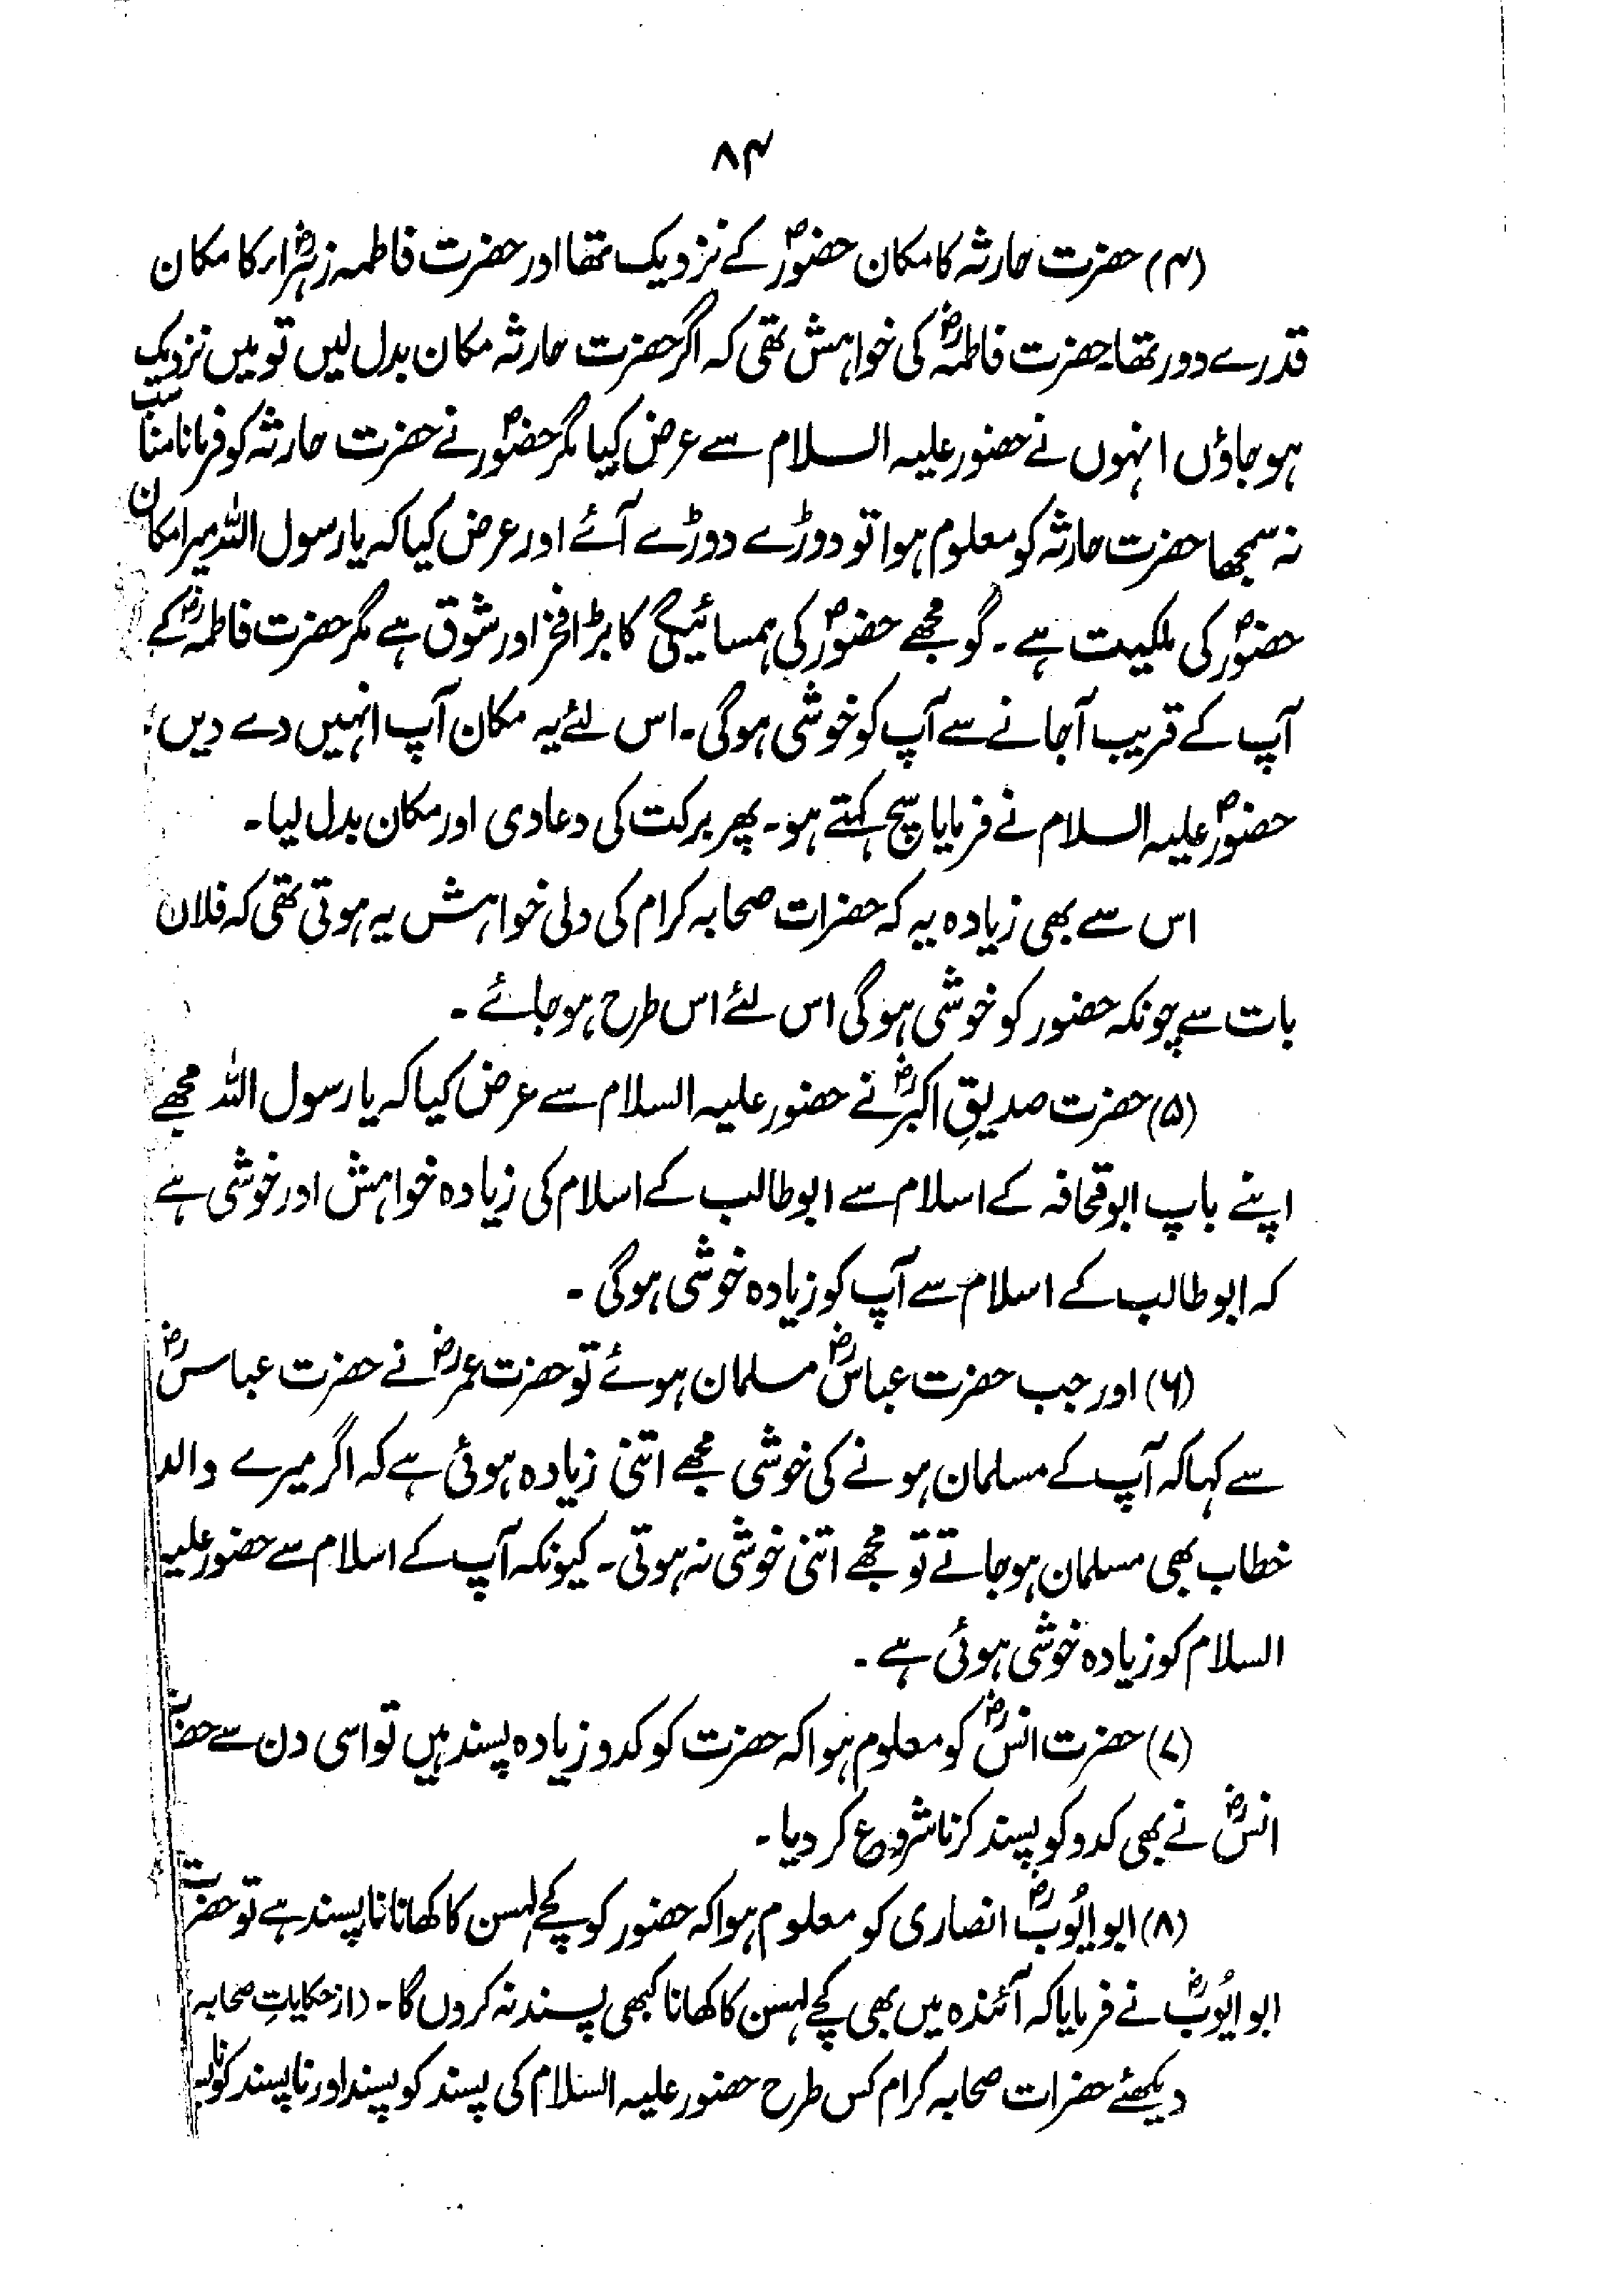 ۸۴
(۴) حضرت حارثہ کا مکان حضورؐ کے نزدیک تھا اور حضرت فاطمہ زہراؓ کا مکان
قدرے دور تھا۔ حضرت فاطمہؓ کی خواہش تھی کہ اگر حضرت حارثہ مکان بدل لیں تو میں نزدیک
ہو جاؤں انہوں نے حضور علیہ السلام سے عرض کیا مگر حضورؐ نے حضرت حارثہ کو فرمانا مناسب
نہ سمجھا حضرت حارثہ کو معلوم ہوا تو دوڑے دوڑے آئے اور عرض کیا کہ یا رسول اللہ میرا مکان
حضورؐ کی ملکیت ہے۔ گو مجھے حضورؐ کی ہمسائیگی کا بڑا فخر اور شوق ہے مگر حضرت فاطمہؓ کے
آپ کے قریب آجانے سے آپ کو خوشی ہوگی۔ اس لئے یہ مکان آپ انہیں دے دیں۔
حضورؐ علیہ السلام نے فرمایا سچ کہتے ہو۔ پھر برکت کی دعا دی اور مکان بدل لیا۔
اس سے بھی زیادہ یہ کہ حضرات صحابہ کرام کی دلی خواہش یہ ہوتی تھی کہ فلاں
بات سے چونکہ حضور کو خوشی ہوگی اس لئے اس طرح ہو جائے۔
(۵) حضرت صدیقِ اکبرؓ نے حضور علیہ السلام سے عرض کیا کہ یا رسول اللہ مجھے
اپنے باپ ابو قحافہ کے اسلام سے ابو طالب کے اسلام کی زیادہ خواہش اور خوشی ہے
کہ ابو طالب کے اسلام سے آپ کو زیادہ خوشی ہوگی۔
(۶) اور جب حضرت عباسؓ مسلمان ہوئے تو حضرت عمرؓ نے حضرت عباسؓ
سے کہا کہ آپ کے مسلمان ہونے کی خوشی مجھے اتنی زیادہ ہوئی ہے کہ اگر میرے والد
خطاب بھی مسلمان ہو جاتے تو مجھے اتنی خوشی نہ ہوتی۔ کیونکہ آپ کے اسلام سے حضور علیہ
السلام کو زیادہ خوشی ہوئی ہے۔
(۷) حضرت انسؓ کو معلوم ہوا کہ حضرت کو کدو زیادہ پسند ہیں تو اسی دن سے حضرت
انسؓ نے بھی کدو کو پسند کرنا شروع کر دیا۔
(۸) ابو ایُوبؓ انصاری کو معلوم ہوا کہ حضور کو کچے لہسن کا کھانا ناپسند ہے تو حضرت
ابو ایُوبؓ نے فرمایا کہ آئندہ میں بھی کچے لہسن کا کھانا کبھی پسند نہ کروں گا۔ (از حکایاتِ صحابہ
دیکھئے حضرات صحابہ کرام کس طرح حضور علیہ السلام کی پسند کو پسند اور ناپسند کو